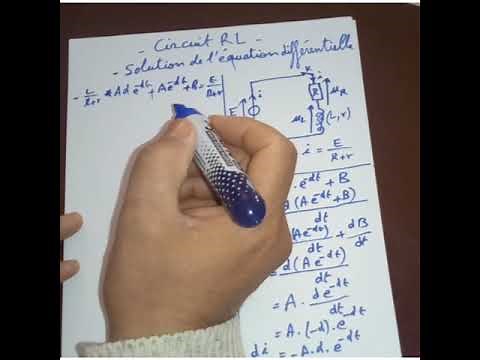 - Circuit RL -
- Solution de l'équation différentielle
- L/R+r * A d e^-dt + A e^-dt + B = E/R+r
K
i
i
R
u_R
E
u_L
(L, r)
i = E/R+r
e^-dt + B
d(A e^-dt + B)
dt
(A e^-dt) + dB/dt
dt
= d(A e^-dt)
dt
= A . d e^-dt/dt
= A . (-d) . e^-dt
di = - A . d . e^-dt